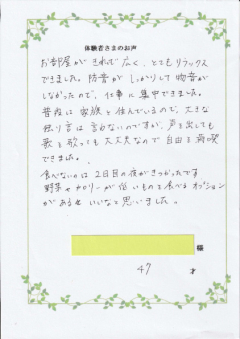 体験者さまのお声
お部屋がきれいで広く、とてもリラックス
できました。防音がしっかりして物音が
しなかったので、仕事に集中できました。
普段は家族と住んでいるので、大きな
独り言は言わないのですが、声を出しても
歌を歌っても大丈夫なので自由を満喫
できました。
食べないのは2日目の夜がきつかったです
野菜やカロリーが低いものを食べるオプション
があるといいなと思いました。
様
47 才